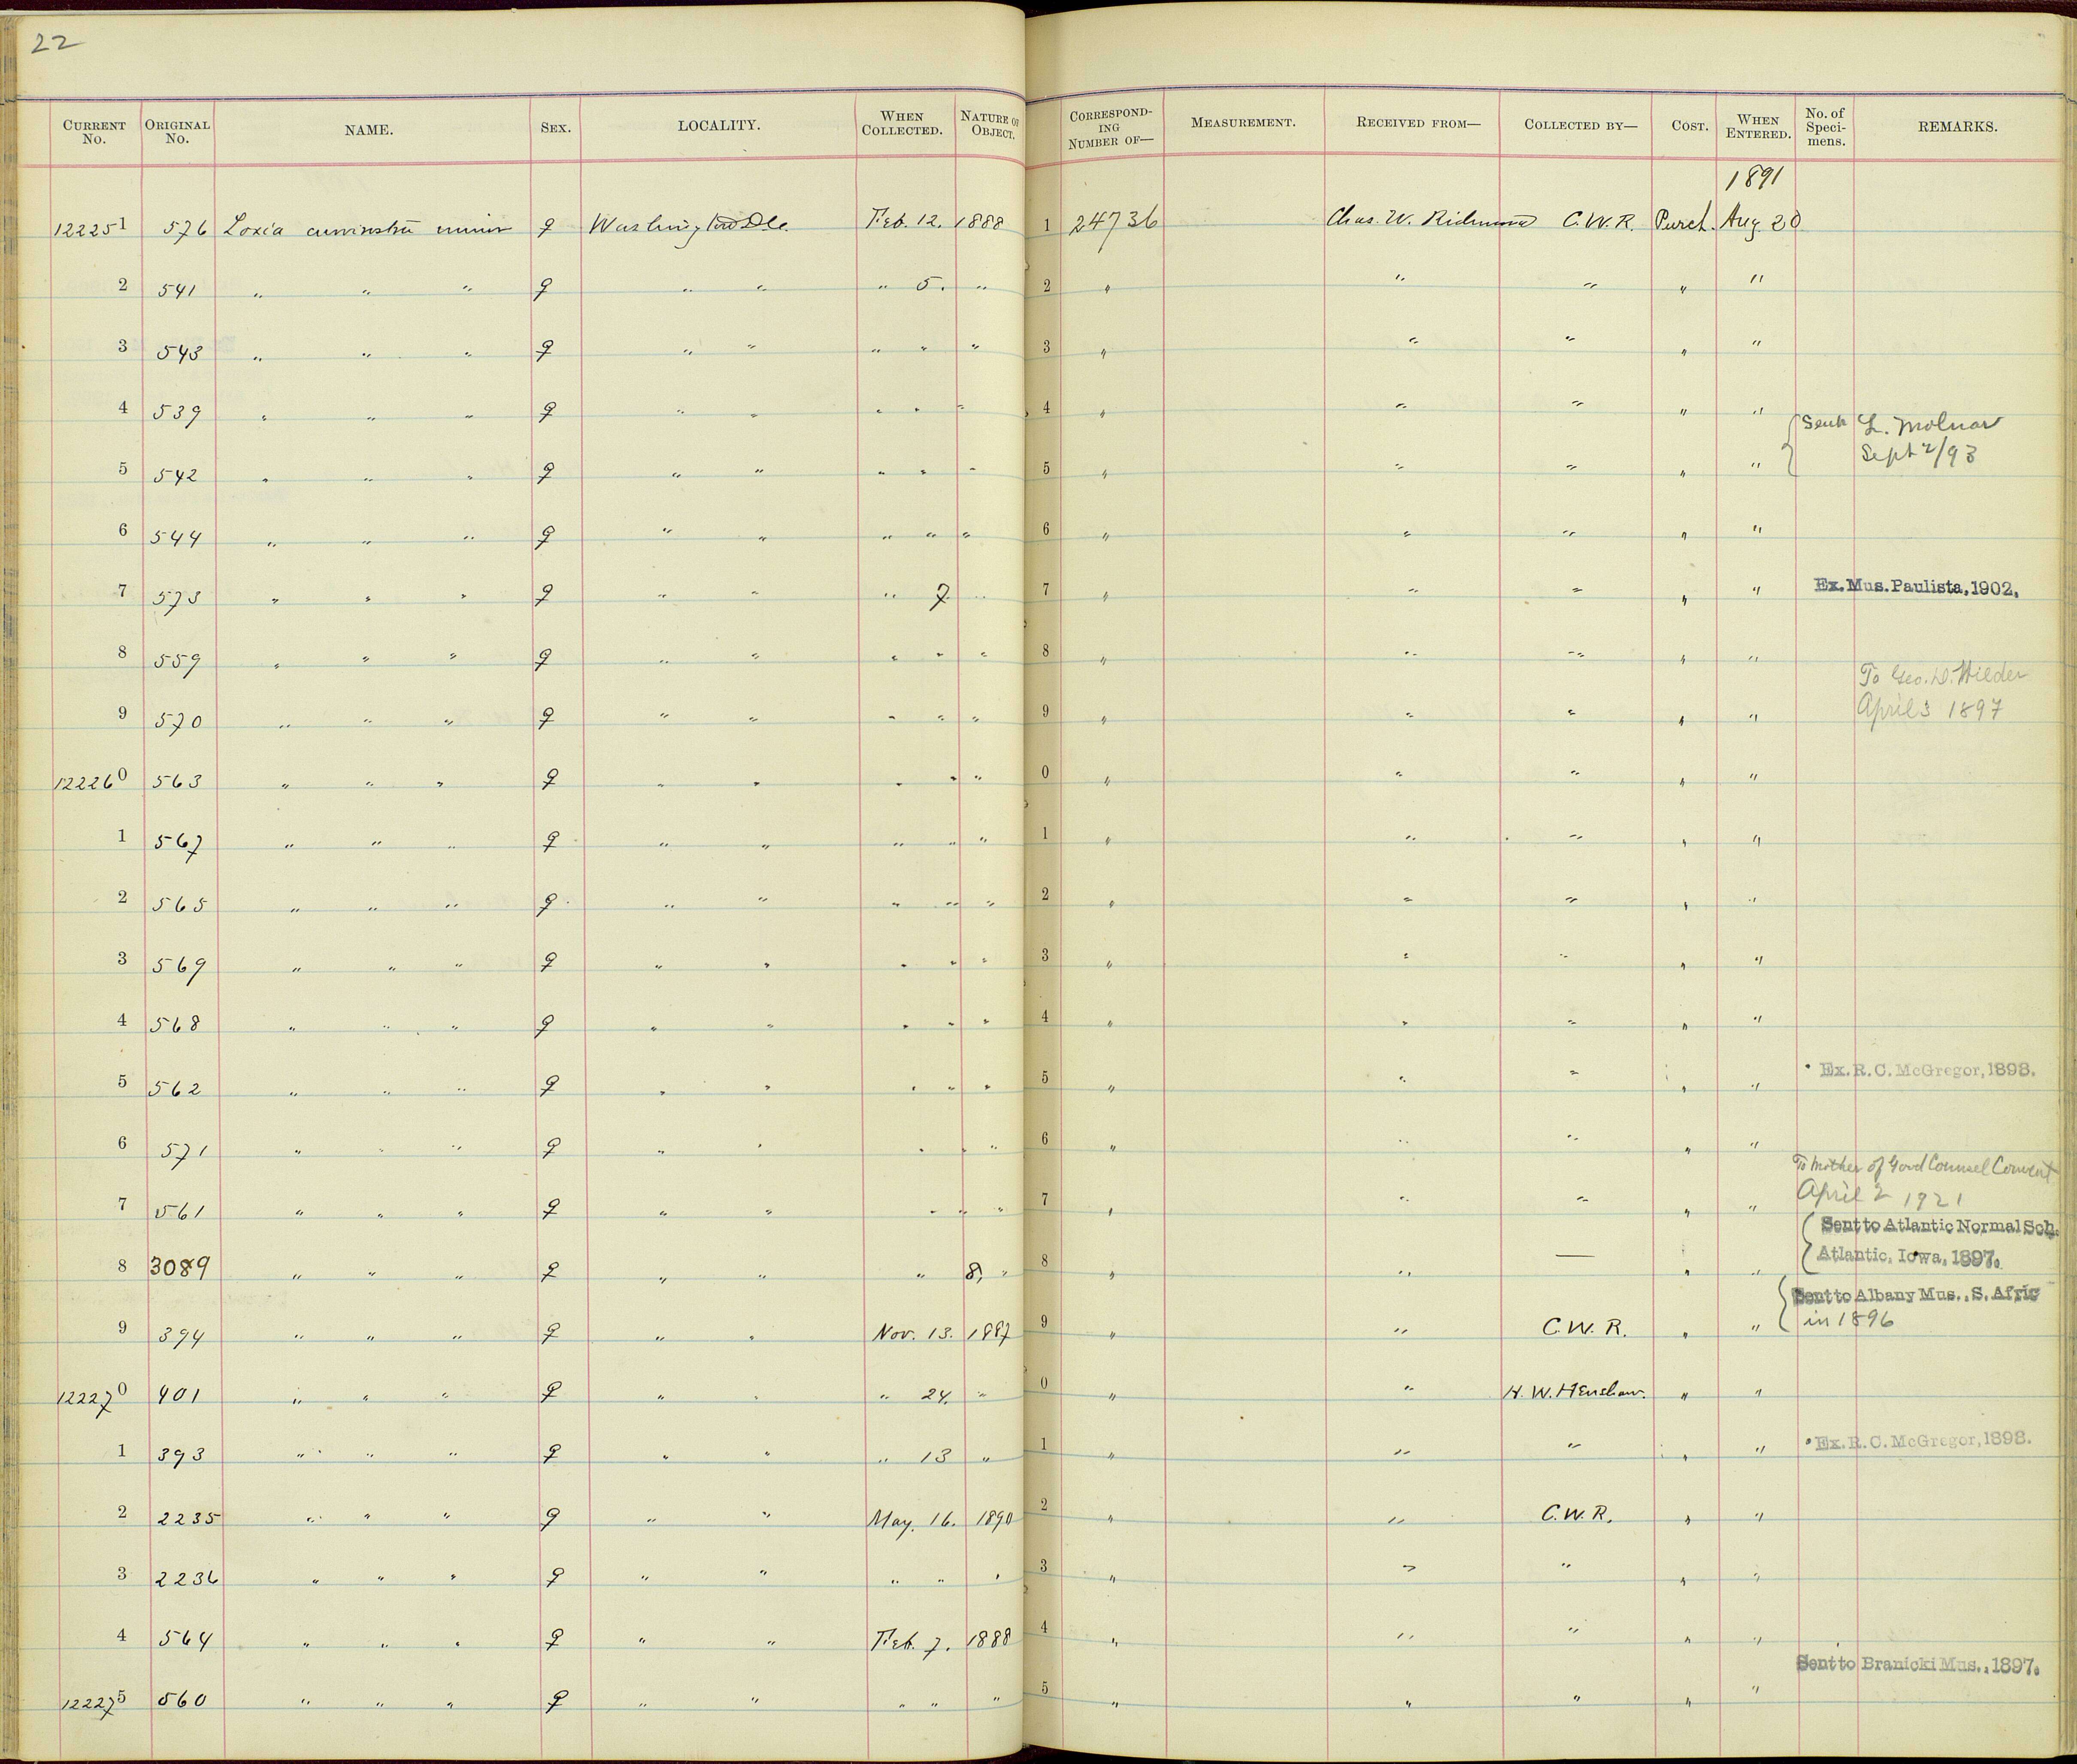 22
CURRENT No. ORIGINAL No. NAME. SEX. LOCALITY. WHEN COLLECTED. NATURE OF OBJECT. CORRESPONDING NUMBER OF— MEASUREMENT. RECEIVED FROM— COLLECTED BY— COST. WHEN ENTERED. No. of Specimens. REMARKS.
1891
122251 576 Loxia curvirostra minor ♀ Washington D.C. Feb. 12. 1888 1 24736 Chas. W. Richmond C.W.R. Purch. Aug 20
2 541 " " " ♀ " " " 5. " 2 " " " " "
3 543 " " " ♀ " " " " " 3 " " " " "
4 539 " " " ♀ " " " " " 4 " " " " " Sent L. Molnar
5 542 " " " ♀ " " " " " 5 " " " " " Sept 2/93
6 544 " " " ♀ " " " " " 6 " " " " "
7 573 " " " ♀ " " " 7 " 7 " " " " " Ex. Mus. Paulista, 1902.
8 559 " " " ♀ " " " " " 8 " " " " " To Geo. D. Wilder
9 570 " " " ♀ " " " " " 9 " " " " " April 3 1897
122260 563 " " " ♀ " " " " " 0 " " " " "
1 567 " " " ♀ " " " " " 1 " " " " "
2 565 " " " ♀ " " " " " 2 " " " " "
3 569 " " " ♀ " " " " " 3 " " " " "
4 568 " " " ♀ " " " " " 4 " " " " "
5 562 " " " ♀ " " " " " 5 " " " " " Ex. R. C. McGregor, 1898.
6 571 " " " ♀ " " " " " 6 " " " " "
To Mother of Good Counsel Convent
7 561 " " " ♀ " " " " " 7 " " " " " April 2 1921
Sent to Atlantic Normal Sch.
8 3089 " " " ♀ " " " 8, " 8 " " — " " Atlantic, Iowa, 1897.
Sent to Albany Mus., S. Afric
9 394 " " " ♀ " " Nov. 13. 1887 9 " " C.W.R. " " in 1896
122270 401 " " " ♀ " " " 24. " 0 " " H. W. Henshaw. " "
1 393 " " " ♀ " " " 13 " 1 " " " " " Ex. R. C. McGregor, 1898.
2 2235 " " " ♀ " " May. 16. 1890 2 " " C.W.R. " "
3 2236 " " " ♀ " " " " " 3 " " " " "
4 564 " " " ♀ " " Feb. 7. 1888 4 " " " " "
Sent to Branicki Mus., 1897.
122275 560 " " " ♀ " " " " " 5 " " " " "